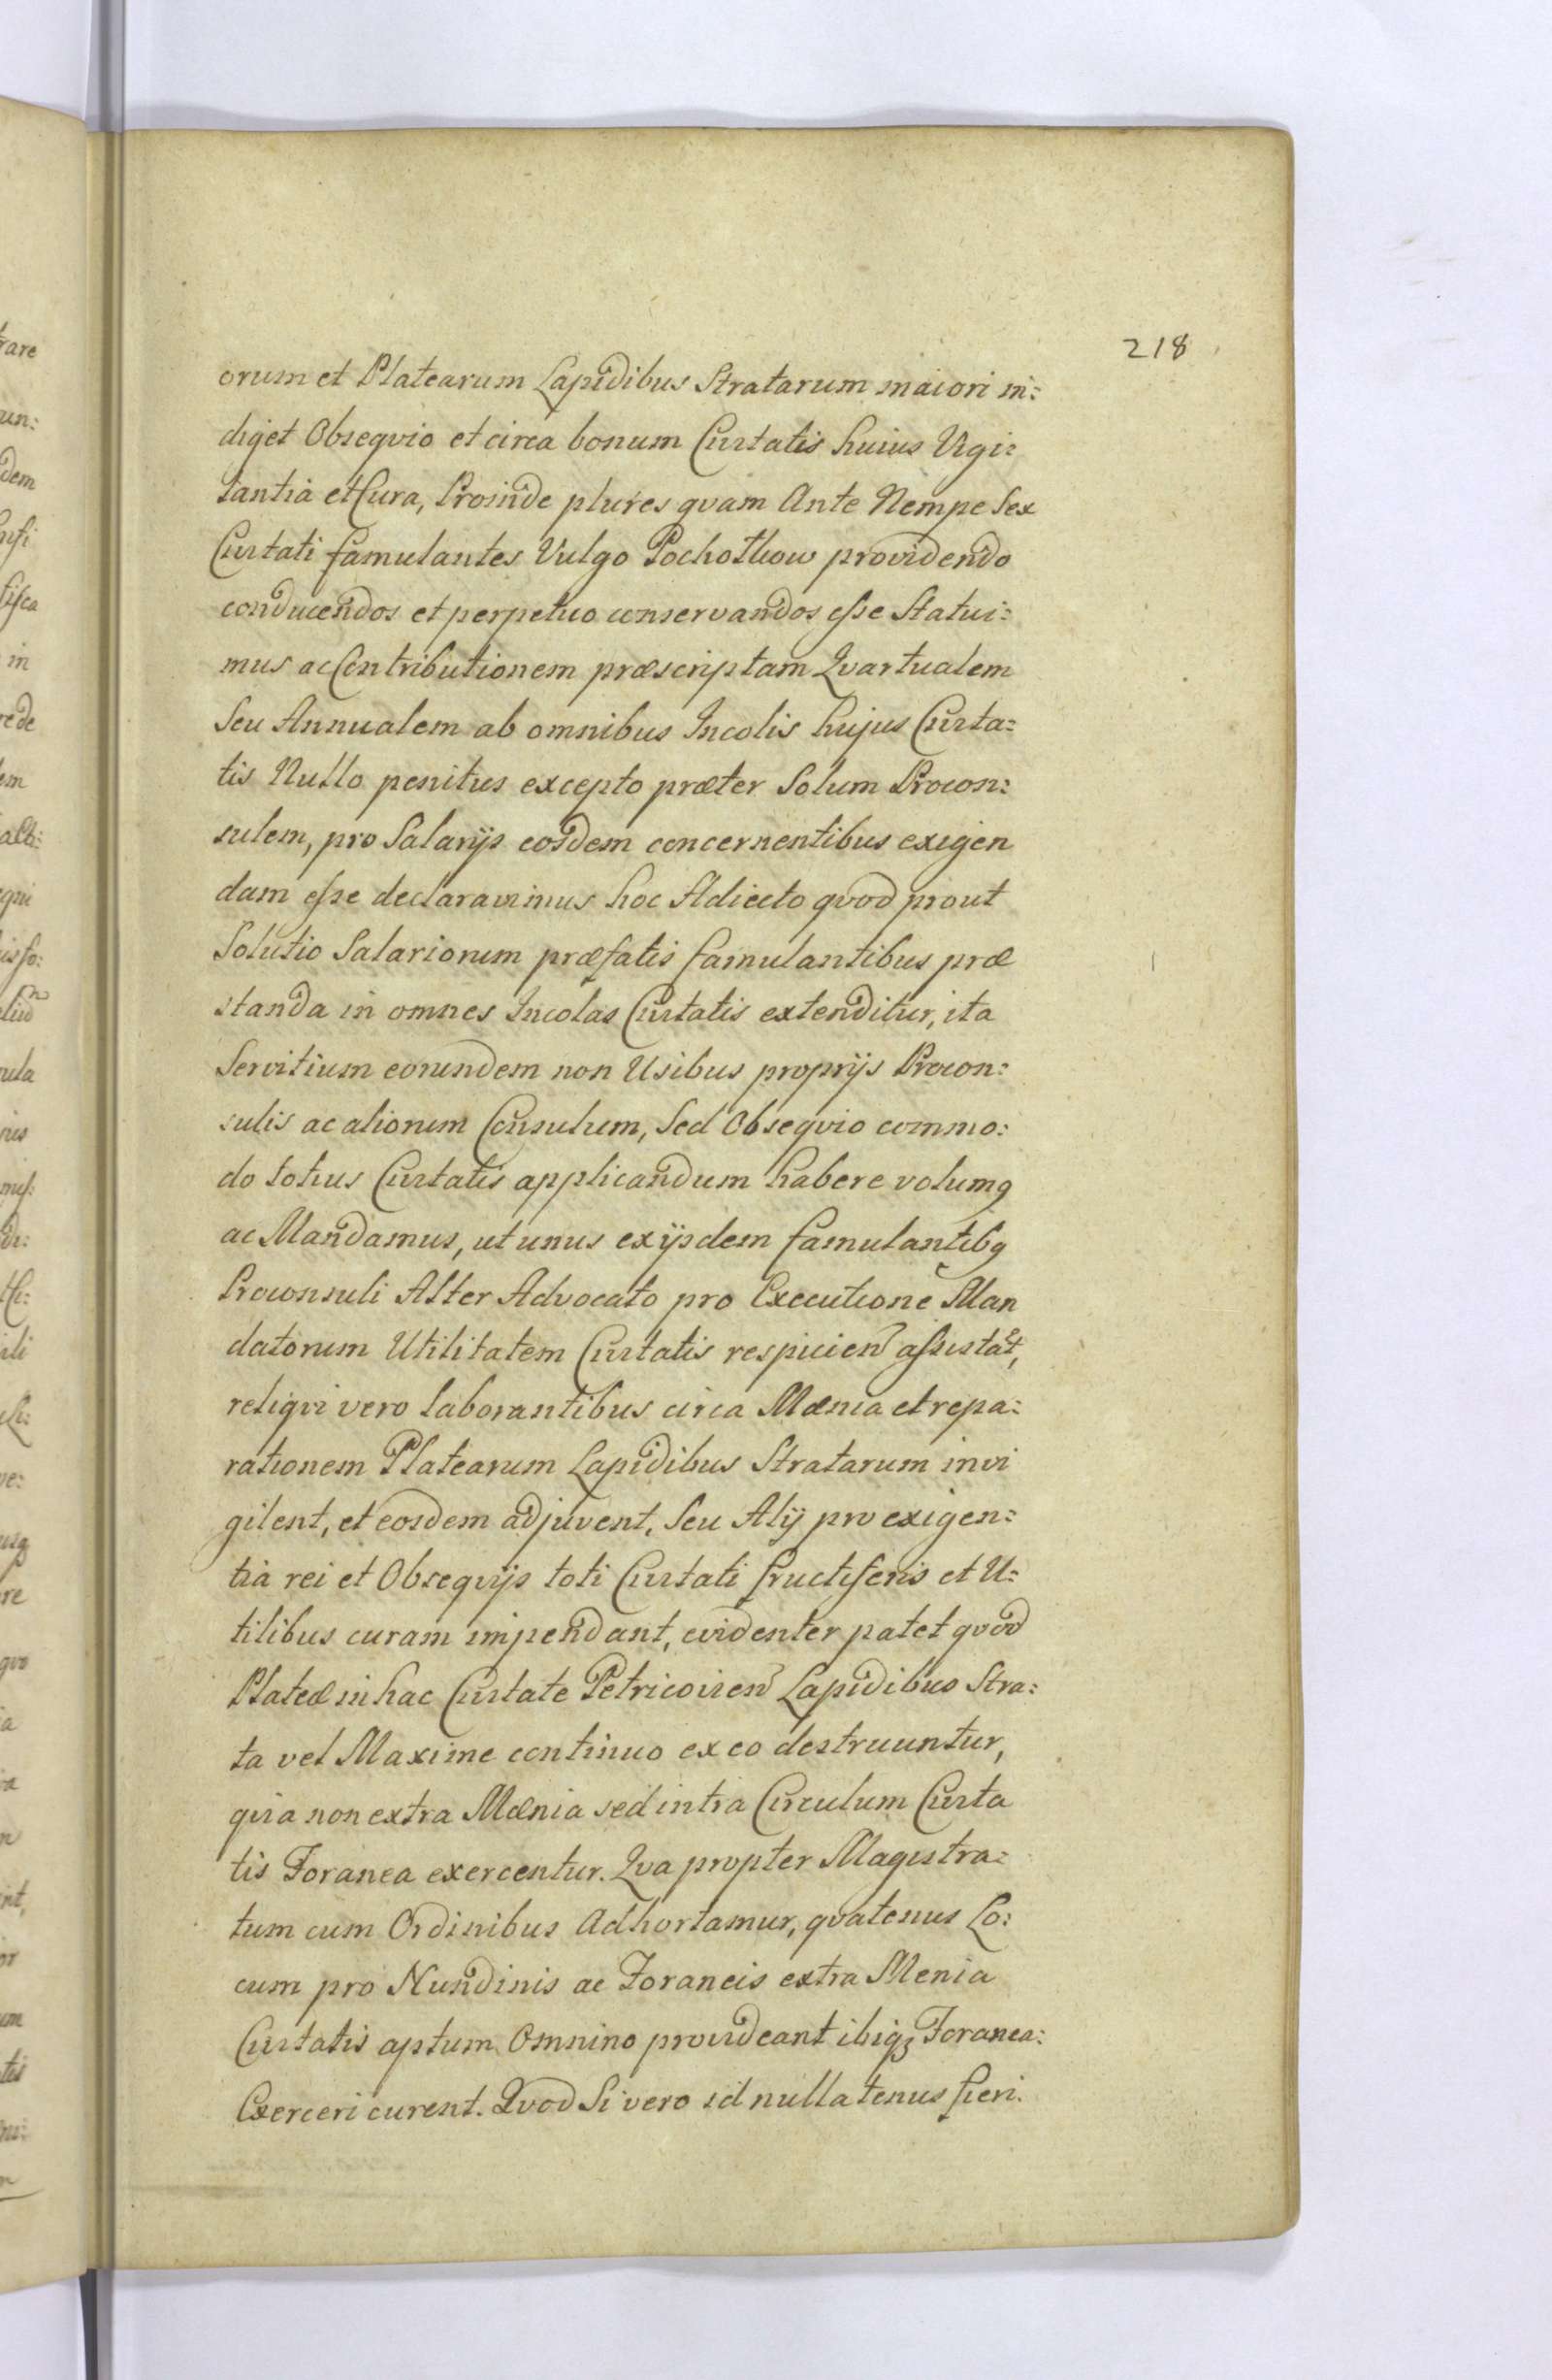 218
orum et Platearum Lapidibus Stratarum maiori in:
diget Obseqvio et circa bonum Civitatis huius Vigi:
lantia et Cura, Proinde plures qvam Ante Nempe Sex
Civitati famulantes Vulgo Pochotkow providendo
conducendos et perpetuo conservandos esse Statui:
mus ac Contributionem præscriptam Qvartualem
Seu Annualem ab omnibus Incolis hujus Civita:
tis Nullo penitus excepto præter Solum Procon:
sulem, pro Salarijs eosdem concernentibus exigen
dam esse declaravimus hoc Adiecto qvod prout
Solutio Salariorum præfatis famulantibus præ
standa in omnes Incolas Civitatis extenditur, ita
Servitium eorundem non Usibus proprijs Procon:
sulis ac aliorum Consulum, Sed Obseqvio commo:
do totius Civitatis applicandum habere volumꝯ
ac Mandamus, ut unus ex ijsdem famulantibꝯ
Proconsuli Alter Advocato pro Executione Man
datorum Utilitatem Civitatis respicien assistat,
reliqvi vero laborantibus circa Mœnia et repa:
rationem Platearum Lapidibus Stratarum invi
gilent, et eosdem adjuvent, Seu Alij pro exigen:
tia rei et Obseqvijs toti Civitati fructiferis et U:
tilibus curam impendant, evidenter patet qvod
Plateæ in hac Civitate Petricovien Lapidibus Stra:
ta vel Maxime continuo ex eo destruuntur,
qvia non extra Mœnia sed intra Circulum Civita
tis Foranea exercentur. Qva propter Magistra:
tum cum Ordinibus Adhortamur, qvatenus Lo:
cum pro Nundinis ac Foraneis extra Menia
Civitatis aptum Omnino provideant ibiqꝫ Foranea:
Exerceri curent. Qvod Si vero id nullatenus fieri.